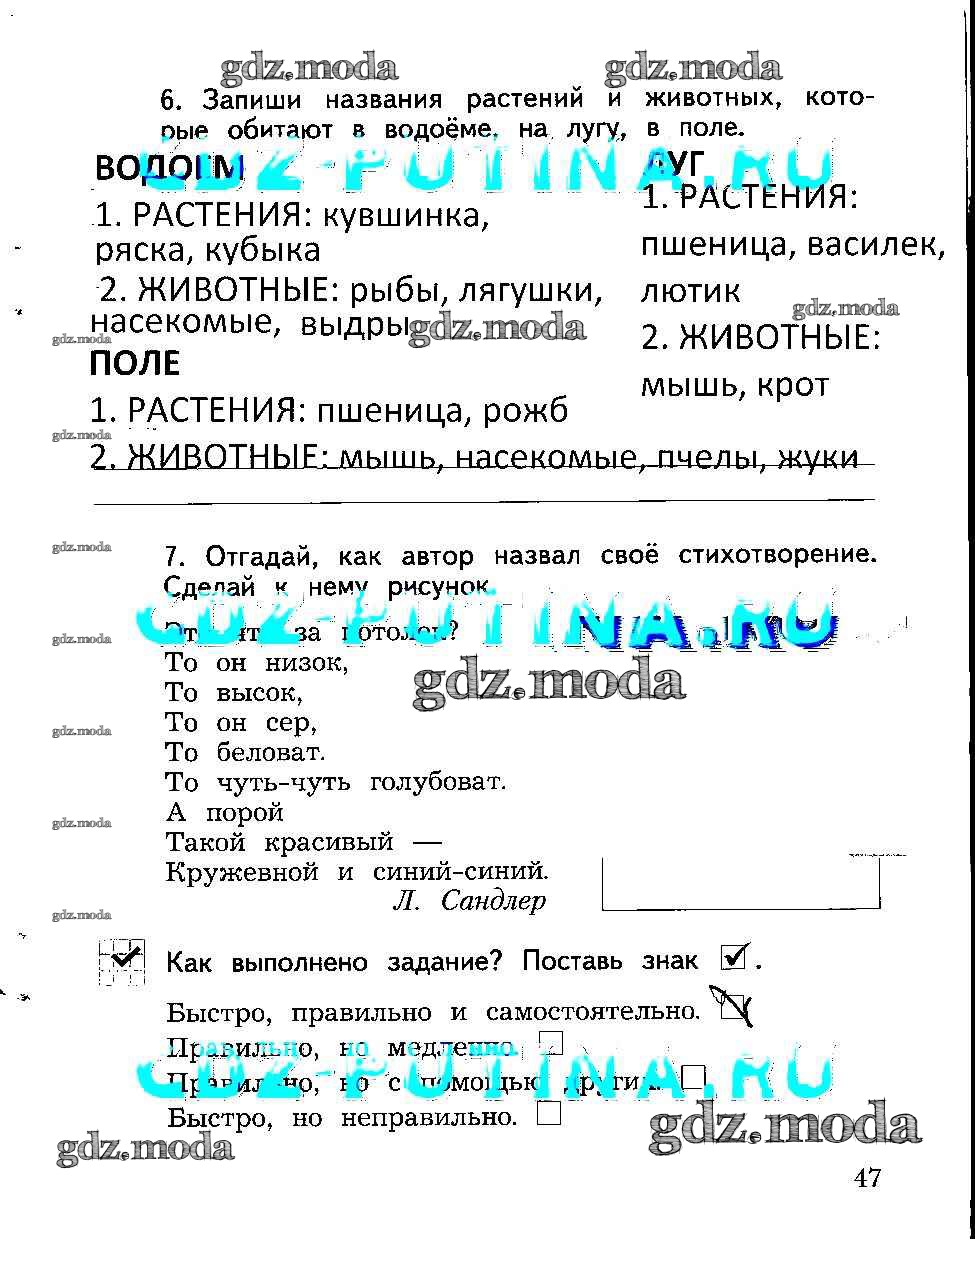 gdz.moda gdz.moda
6. Запиши названия растений и животных, кото-
рые обитают в водоёме, на лугу, в поле.
GDZ-PUTINA.RU
ВОДОЕМ
1. РАСТЕНИЯ: кувшинка,
ряска, кубыка
2. ЖИВОТНЫЕ: рыбы, лягушки,
насекомые, выдры
gdz.moda
gdz.moda
ЛУГ
1. РАСТЕНИЯ:
пшеница, василек,
лютик
gdz.moda
2. ЖИВОТНЫЕ:
мышь, крот
ПОЛЕ
1. РАСТЕНИЯ: пшеница, рожб
gdz.moda
2. ЖИВОТНЫЕ: мышь, насекомые, пчелы, жуки
gdz.moda
7. Отгадай, как автор назвал своё стихотворение.
Сделай к нему рисунок
GDZ-PUTINA.RU
за потолок?
gdz.moda
То он низок,
gdz.moda
То высок,
То он сер,
gdz.moda
То беловат.
То чуть-чуть голубоват.
А порой
gdz.moda
Такой красивый —
Кружевной и синий-синий.
Л. Сандлер
gdz.moda
Как выполнено задание? Поставь знак ☑.
Быстро, правильно и самостоятельно.
Правильно, но медленно.
GDZ-PUTINA.RU
Правильно, но с помощью других.
Быстро, но неправильно.
gdz.moda gdz.moda
47